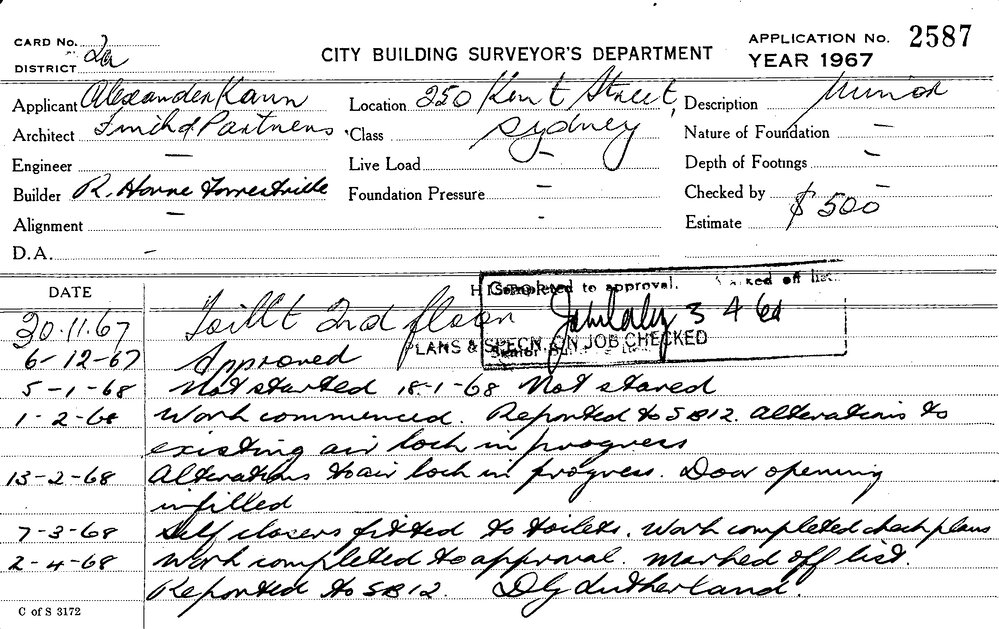 CARD No.
DISTRICT 2a
CITY BUILDING SURVEYOR'S DEPARTMENT
APPLICATION No. 2587
YEAR 1967
Applicant Alexander Kann
Location 250 Kent Street,
Description Minor
Architect & Partners
Class Sydney
Nature of Foundation —
Engineer —
Live Load —
Depth of Footings —
Builder R. Horne Forrestville
Foundation Pressure —
Checked by —
Alignment —
-
Estimate $500
D.A. —
DATE
Completed to approval. Marked off list.
3 4 68
PLANS & SPECN. ON JOB CHECKED
30.11.67 Toillt 2nd floor
6-12-67 Approved
5-1-68 Not started 18-1-68 Not stared
1-2-68 Work commenced. Reported to SB12. Alterations to
existing air lock in progress
13-2-68 Alterations to air lock in progress. Door opening
infilled
7-3-68 Self closers fitted to toilets. Work completed check plans
2-4-68 Work completed to approval. Marked off list.
Reported to SB12. Sutherland.
C of S 3172